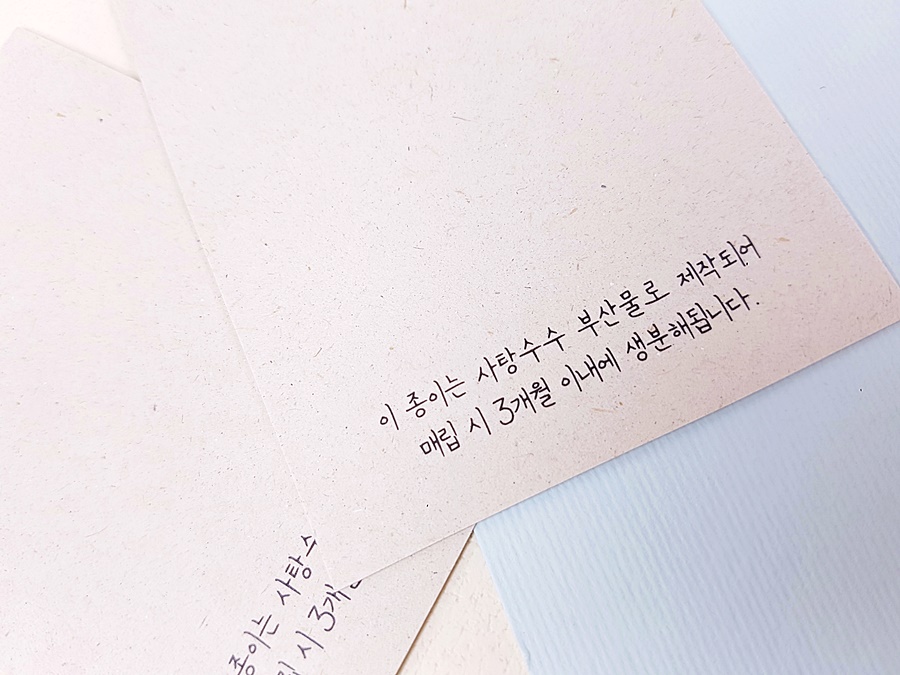 이 종이는 사탕수수 부산물로 제작되어
매립 시 3개월 이내에 생분해됩니다.
종이는 사탕수
시 3개